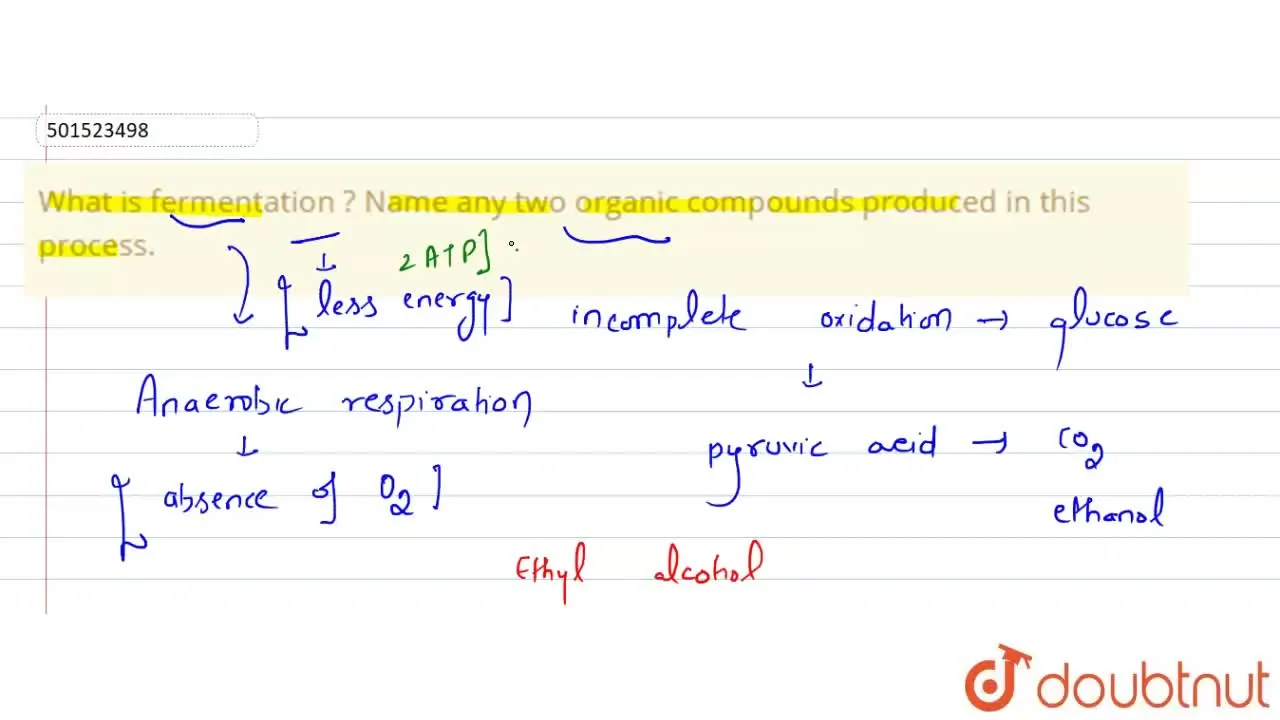 501523498
What is fermentation ? Name any two organic compounds produced in this
process.
2 ATP]
[less energy]
incomplete oxidation → glucose
Anaerobic respiration
pyruvic acid → CO2
[absence of O2]
ethanol
Ethyl alcohol
doubtnut